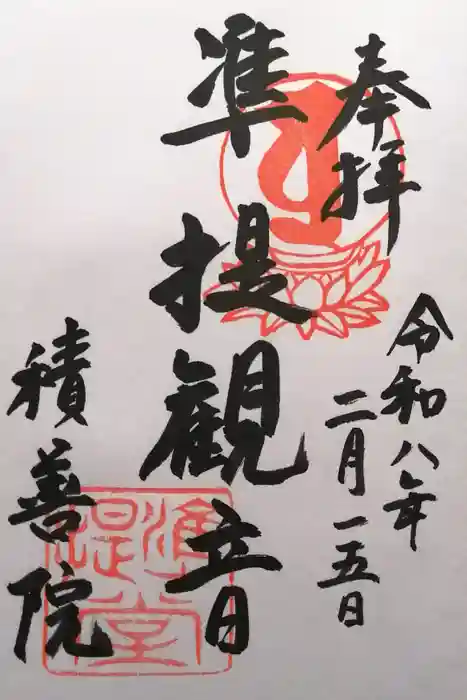 奉拝
令和八年
二月一五日
准提観音
積善院
准提堂